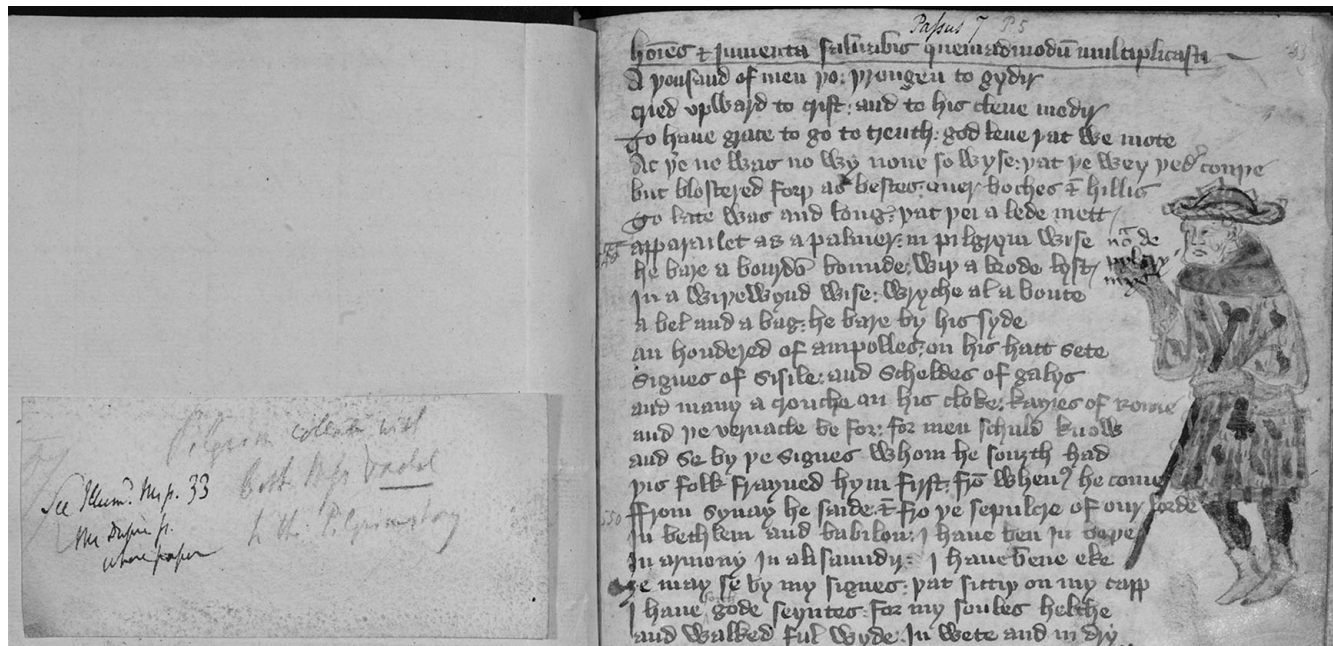 See Illumd. Ms p. 33
Passus 7 P. 5
hoīes & Jumenta saluabis quemadmodū multiplicasti
A þousand of men þo: þrongen to gydir
cried vpward to crist: and to his clene modir
To haue grace to go to treuth: god leue þat we mote
Ac þe ne was no wy none so wyse: þat þe wey þeder couþe
but blostered forþ as bestes: ouer boches & hillis
To late was and long: þat þei a lede mett
apparailet as a palmer: in pilgrym wise
he bare a bourdō bounde: wiþ a brode lyst
In a wiþewynd wise: wryche al a boute
a bel and a bag: he bare by his syde
an hondered of ampolles: on his hatt sete
signes of sisile: and scheldes of galys
and many a crouche on his cloke: kayies of rome
and þe vernacle be for: for men schuld knowe
and se by þe signes whom he souȝth had
þis folk frayned hym first: frō whenȝ he come
550 ffrom synay he saide: & fro þe sepulcre of our lorde
In bethlem and babilon: I haue ben in boþe
In armony In alisaundir: I haue bene eke
ȝe may se by my signes: þat sittiþ on my capp
I haue gode seyntes: for my soules helthe
and walked ful wyde: In wete and in dry